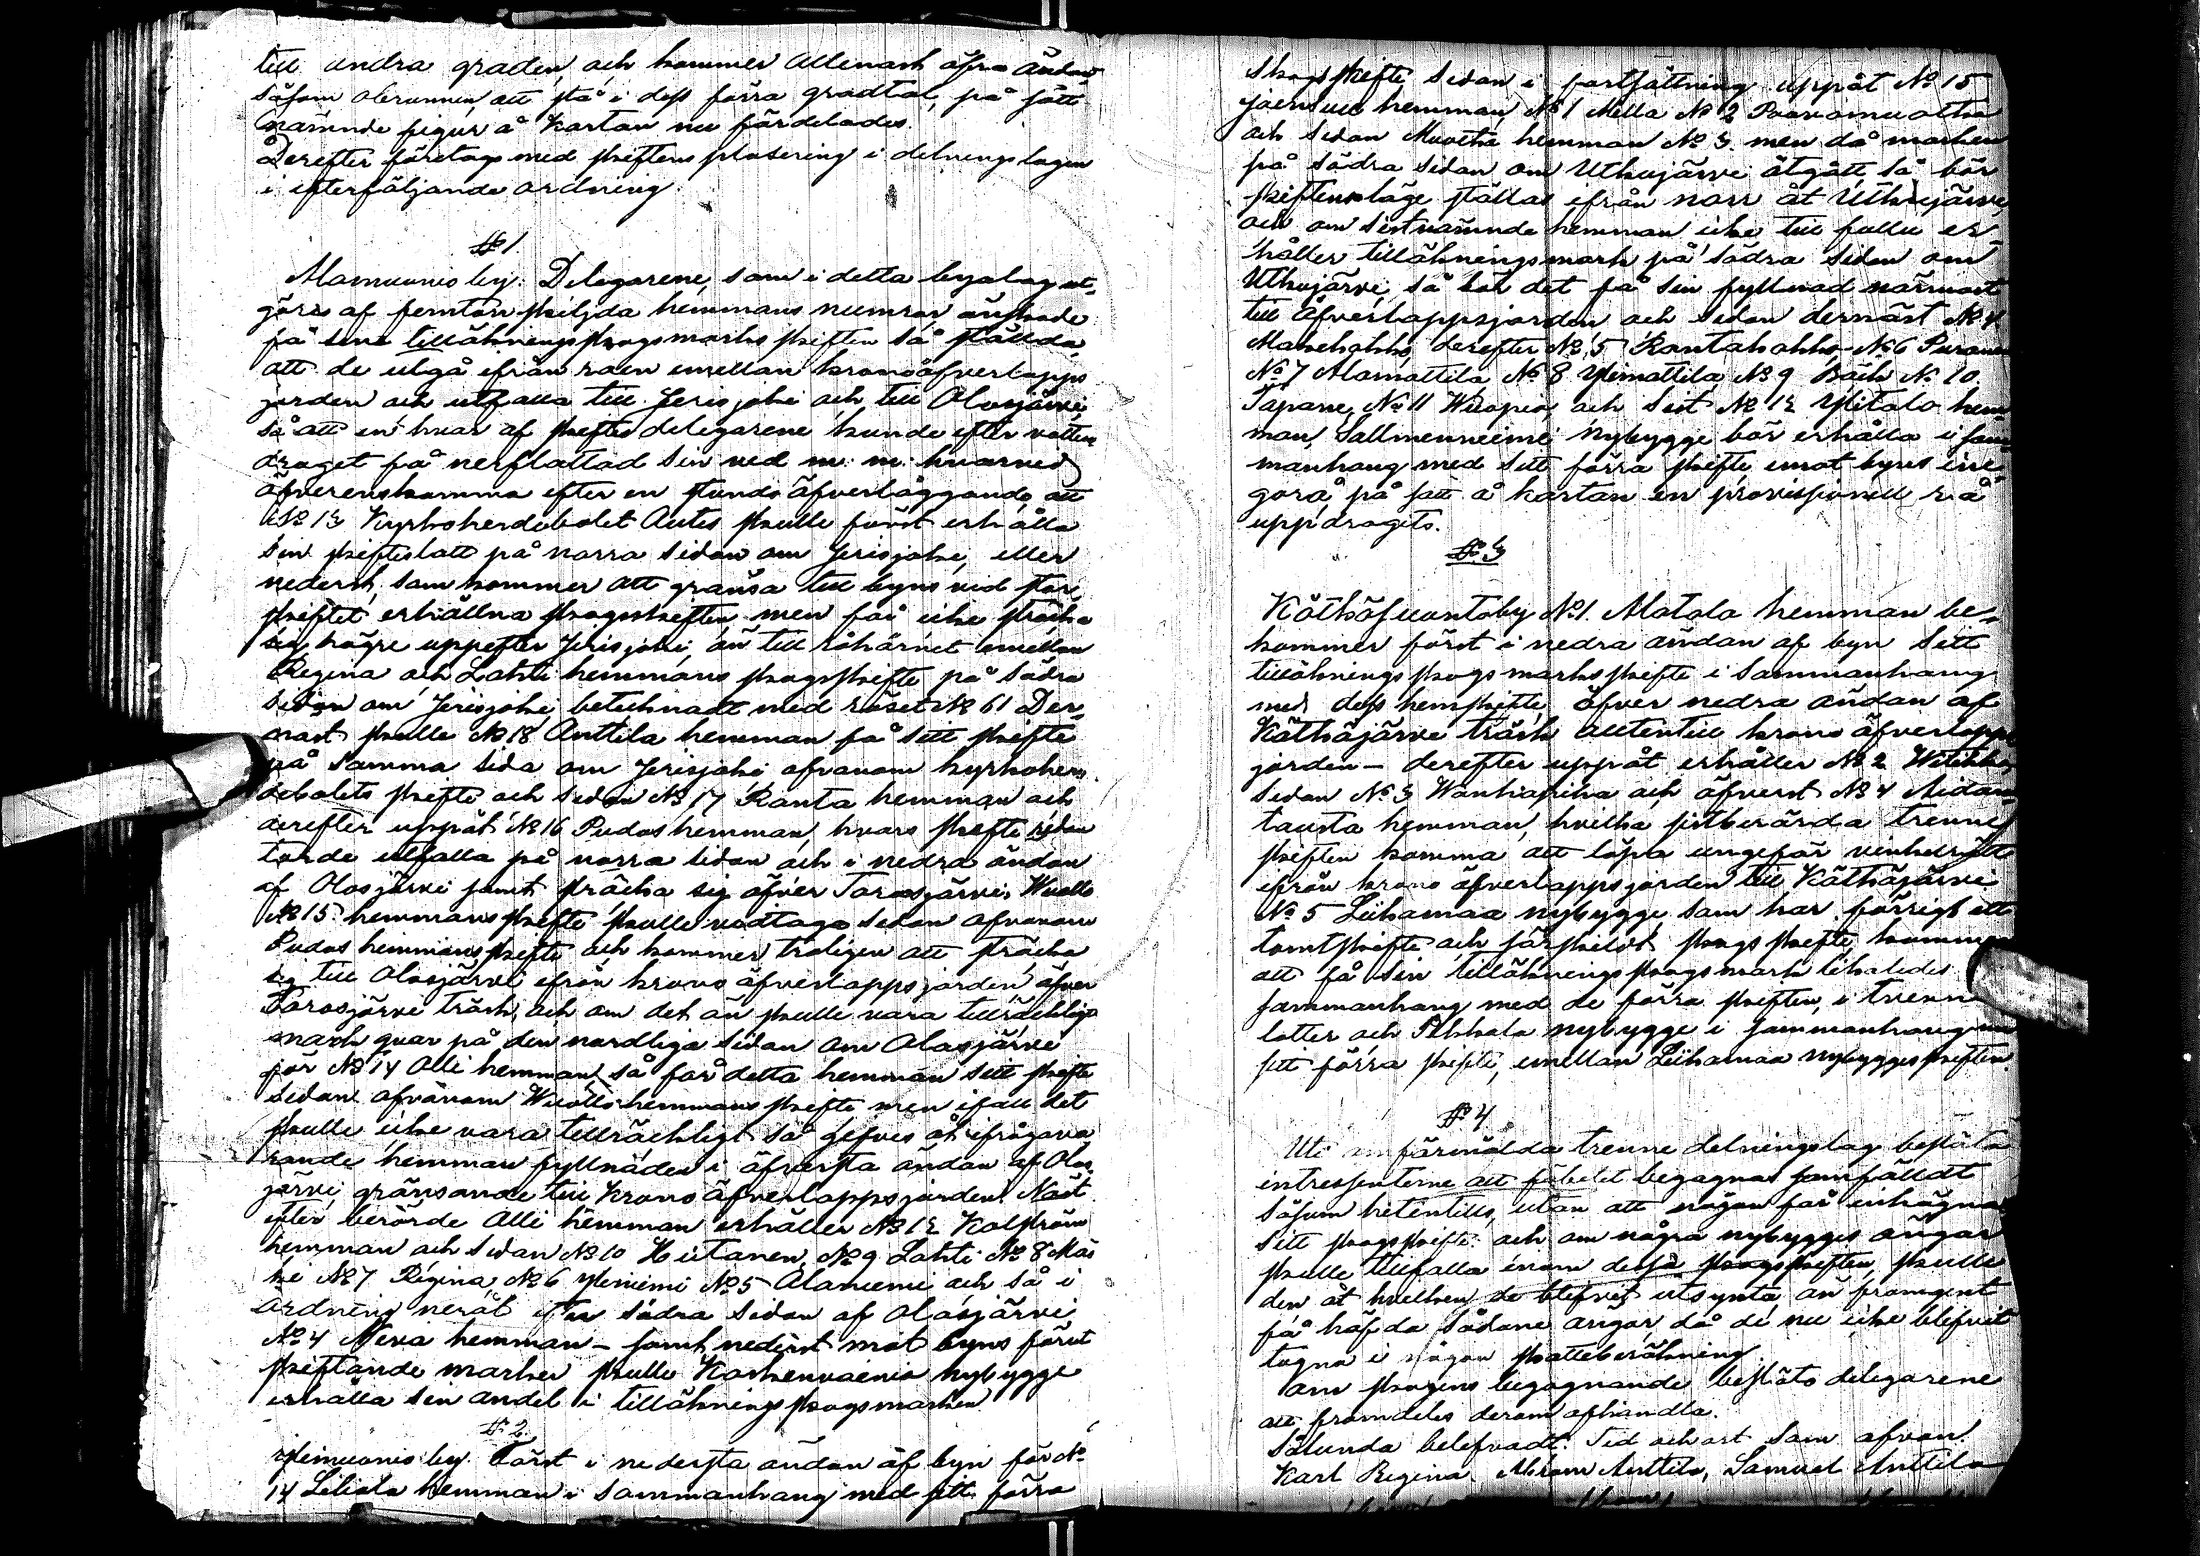 till andra graden, och kommer allenast öfra ändan
såsom obrunnen, att stå i dess förra gradtal, på sätt
nämnde figur å Kartan nu fördelades.
Derefter företogs med skiftens plasering i delningslagen
i efterföljande ordning.
§ 1.
Alamuonio by. Delegarene, som i detta byalag ut-
göres af femton skiljda hemmans numror önskade
få sine tillökningsskogsmarks skiften så ställda,
att de utgå ifrån raen emellan kronoöfverlopps
jorden och utfalla till Jerisjoki och till Olosjärvi
så att en hvar af skiftesdelegarene kunde efter vatten
draget få nerflottad sin ved m. m. hvarvid
öfverenskomma efter en stunds öfverläggande, att
No 13 Kyrkoherdebolet Autes skulle först erhålla
sin skifteslott på norra sidan om Jerisjoki, eller
nederst, som kommer att gränsa till byns vid stor-
skiftet erhållna skogsskiften, men får icke sträcka
sig högre uppefter Jerisjoki, än till råhörnet emellan
Regina och Lahti hemmans skogsskifte på södra
sidan om Jerisjoki betecknadt med röset No 61 Der-
näst skulle No 18 Anttila hemman få sitt skifte
på samma sida om Jerisjoki ofvanom kyrkoher-
debolets skifte och sedan No 17 Ranta hemman och
derefter uppåt No 16 Pudas hemman, hvars skifte redan
torde utfalla på norra sidan och i nedra ändan
af Olosjärvi samt sträcka sig öfver Torosjärvi, Wuollo
No 15 hemmans skifte skulle vidtaga sedan ofvanom
Pudas hemmans skifte och kommer troligen att sträcka
sig till Olosjärvi ifrån krono öfverloppsjorden öfver
Torosjärvi träsk, och om det än skulle vara tillräckliga
mark qvar på den nordliga sidan om Olosjärvi
för No 14 Olli hemman, så får detta hemman sitt skifte
sedan ofvanom Wuollo hemmans skifte, men ifall det
skulle icke vara tillräckligt så gefves åt ifrågava
rande hemman fyllnaden i öfversta ändan af Olos
järvi, gränsande till Krono öfverloppsjorden. Näst
efter berörde Olli hemman erhåller No 12 Kolström
hemman och sedan No 10 Hietanen, No 9 Lahti No 8 Mäs
ki No 7 Regina, No 6 Yliniemi No 5 Alaniemi och så i
ordning neråt södra sidan af Olosjärvi
No 4 Neva hemman – samt nederst mot byns förut
skiftande marker skulle Karkenvainio nybygge
erhålla sin andel i tillökningsskogsmarken
§ 2.
Ylimuonio by. Först i nedersta ändan af byn får No
14 Liliala hemman i sammanhang med sitt förra
skogsskifte, sedan i fortsättning uppåt No 15
hemman, No 1 Mella No 2 Paavomuotka
och sedan Muotka hemman No 3 men då marken
på södra sidan om Utkujärvi åtgått, så bör
skiftens läge ställas ifrån norr åt Utkujärvi,
och om sistnämnde hemman icke till fullu er-
håller tillökningsmark på södra sidan om
Utkujärvi, så bör det få sin fyllnad närmast
till öfverloppsjorden och sedan dernäst No 4
derefter No 5 Rantakokko No 6
No 7 Alamattila No 8 Ylimattila No 9 Bäck No 10
Tapane, No 11 Wuopio och sist No 12 Ylitalo hem-
man, Sallmenniemi Nybygge bör erhålla i sam
manhang med sitt förra skifte emot byns
gorå på sätt å kartan en provisionell rå
uppdragits.
§ 3
Kätkäsuvantoby No 1. Alatalo hemman be-
kommer först i nedra ändan af byn sitt
tillöknings skogs marks skifte i sammanhang
med dess hemskifte öfver nedra ändan af
Kätkäjärvi träsk alltintill krono öfverlopps
jorden – derefter uppåt erhåller No 2
sedan No 3 Wanhapiha och öfverst No 4 Aidan
tausta hemman, hvilka sistberörda trenne
skiften komma att löpa ungefär vinkelrätt
ifrån krono öfverloppsjorden till Kätkäjärvi
No 5 Liikamaa nybygge som har förrigt ett
tomtskifte och särskildt skogsskifte, kommer
att få sin tillökningsskogsmark likaledes
sammanhang med de förra skiften, i tvenne
lotter och Pekkala nybygge i sammanhang
sitt förra skifte, emellan Liikamaa nybygges skiften.
§ 4
Uti förmälda trenne delningslag besluta
intressenterne att fäbetet begagnas samfäldt
såsom hitintills, utan att någon får inhägna
sitt skogsskifte: och om några nybygges ängar
skulle tillfalla inom dessa skogsskiften, skulle
den åt hvilken de blefvit utsynta, än framgent
få häfda sådane ängar, då de nu icke blefvit
tagna i någon skatteberäkning
Om skogens begagnande besluto delegarene
att framdeles derom afhandla.
Sålunda belefvadt. Tid och ort som ofvan.
Karl Regina. Anttila, Samuel Anttila